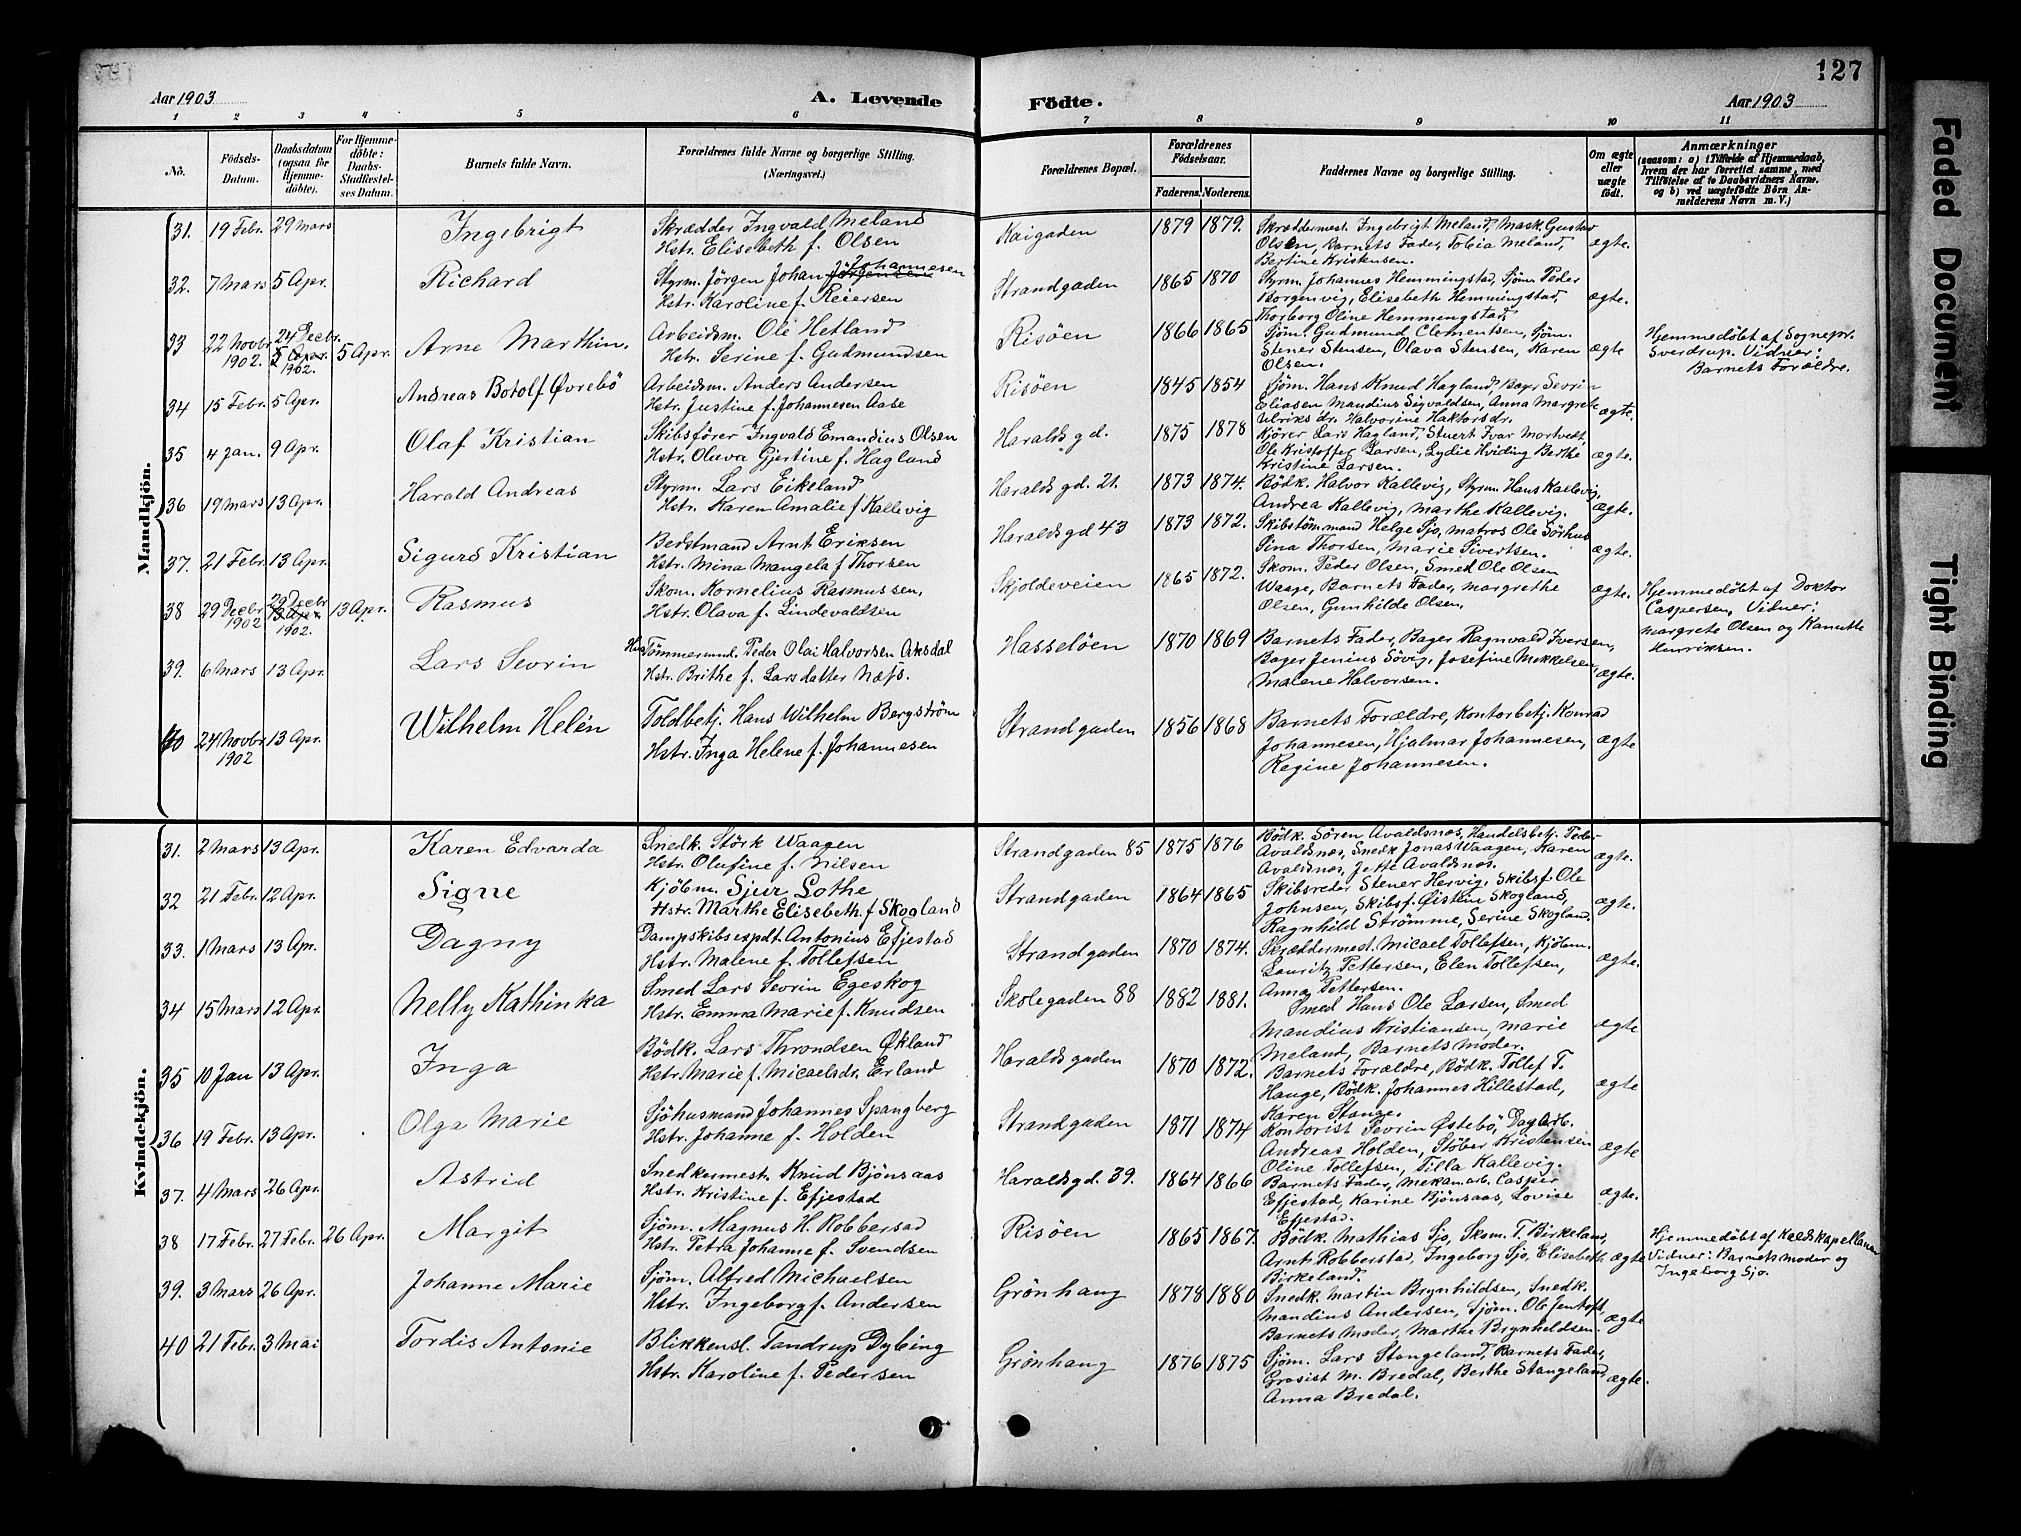 127
Aar 1903 A. Levende Födte. Aar 1903
1 2 3 4 5 6 7 8 9 10 11
No. Födsels-Datum. Daabsdatum (ogsaa for Hjemme-döbte). For Hjemme-döbte: Daabs-Stadfæstel-ses Datum. Barnets fulde Navn. Forældrenes fulde Navne og borgerlige Stilling. (Næringsvei.) Forældrenes Bopæl. Forældrenes Födselsaar. Faderens. Moderens. Faddernes Navne og borgerlige Stilling. Om ægte eller uægte født. Anmærkninger (saasom: a) i Tilfælde af Hjemmedaab, hvem der har forrettet samme, med Tilføielse af to Daabsvidners Navne. og b) ved uægtefödte Börn An-melderens Navn m. V.)
Mandkjön.
31. 19 Febr. 29 Mars Ingebrigt Skrædder Ingvald Meland
Hstr. Elisebeth f. Olsen Kaigaden 1879 1879. Skræddermest. Ingebrigt Meland, Mask. Gustav
Olsen, Barnets Fader, Tobia Meland,
Bertine Kristensen. ægte.
32. 7 Mars 5 Apr. Richard Styrm. Jörgen Johan Jörgensen Johannesen
Hstr. Karoline f. Reiersen Strandgaden 1865 1870 Styrm. Johannes Hemmingstad, Sjöm. Peder
Borgenvig, Elisebeth Hemmingstad,
Thorborg Oline Hemmingstad, ægte.
33 22 Novbr. 1902. 24 Decbr. 5 Apr. 1902. 5 Apr. Arne Marthin. Arbeidsm. Ole Hetland
Hstr. Serine f. Gudmundsen Risöen 1866 1865 Sjöm. Gudmund Clementsen, Sjöm.
Stener Stensen, Olava Stensen, Karen
Olsen. ægte Hjemmedöbt af Sognepr.
Sverdrup. Vidner:
Barnets Forældre.
34 15 Febr. 5 Apr. Andreas Botolf Øvrebö Arbeidsm. Anders Andersen
Hstr. Justine f. Johannesen Aase Risöen 1845 1854 Sjöm. Hans Knud Hagland, Bager Sevrin
Eliasen Maudius Sigvaldsen, Anna Margrete
Ulriks dr. Halvorine Haktorsdr. ægte.
35 4 Jan. 9 Apr. Olaf Kristian Skibsförer Ingvald Emandius Olsen
Hstr. Olava Gjertine f. Hagland Haralds gd. 1875 1878 Kjörer Lars Hagland, Stuert Ivar Mortvedt,
Ole Kristoffer Larsen, Lydie Hviding Berthe
Kristine Larsen. ægte.
36 19 Mars 13 Apr. Harald Andreas Styrm. Lars Eikeland
Hstr. Karen Amalie f Kallevig Haralds gd. 21. 1873 1874. Bödk. Halvor Kallevig, Styrm. Hans Kallevig,
Andrea Kallevig, Marthe Kallevig. ægte.
37. 21 Febr. 13 Apr. Sigurd Kristian Bedstmand Arnt Eriksen
Hstr. Mina Mangela f Thorsen Haralds gd 43 1873 1872. Skibstømmand Helge Sjo, Matros Ole Sörhus
Sina Thorsen, Marie Sivertsen. ægte.
38 29 Decbr 1902 29 Decbr 13 Apr. 1902. 13 Apr. Rasmus Skom. Kornelius Rasmussen,
Hstr. Olava f. Lindevaldsen Skjoldeveien 1865 1872. Skom. Peder Olsen, Smed Ole Olsen
Waage, Barnets Fader, Margrethe
Olsen, Gunhilde Olsen. ægte. Hjemmedöbt af Doktor
Caspersen. Vidner:
Margrete Olsen og Kanutte
Henriksen.
39. 6 Mars 13 Apr. Lars Sevrin Hus Tömmermand. Peder Olai Halvorsen Aksdal
Hstr. Brithe f. Larsdatter Næss. Hasselöen 1870 1869 Barnets Fader, Bager Ragnvald Iversen,
Bager Jenius Sövig, Josefine Mekkelsen,
Malene Halvorsen. ægte.
40 24 Novbr 1902 13 Apr. Wilhelm Helén Toldbetj. Hans Wilhelm Bergström
Hstr. Inga Helene f. Johannesen Strandgaden 1856 1868 Barnets Forældre, Kontorbetj. Konrad
Johannesen, Hjalmar Johannesen,
Regine Johannesen. ægte
Kvindekjön.
31. 2 Mars 13 Apr. Karen Edvarda Snedk. Störk Waagen
Hstr. Olufine f. Nilsen Strandgaden 85 1875 1876 Bödk. Sören Avaldsnæs, Handelsbetj. Peder
Avaldsnæs, Snedk Jonas Waagen, Karen
Avaldsnæs, Jette Avaldsnæs. ægte.
32 21 Febr. 12 Apr. Signe Kjöbm. Sjur Lothe
Hstr. Marthe Elisebeth. f Skogland Strandgaden 1864 1865 Skibsreder Stener Hervig, Skibsf. Ole
Johnsen, Skibsf. Øistein Skogland,
Ragnhild Strömme, Serine Skogland. ægte.
33. 1 Mars 13 Apr. Dagny Dampskibsexpdt. Antonius Efjestad
Hstr. Malene f. Tollefsen Strandgaden 1870 1874. Skræddermest. Micael Tollefsen, Kjöbm.
Lauritz Pettersen, Elen Tollefsen,
Anna Pettersen. ægte.
34 15 Mars 12 Apr. Nelly Kathinka Smed Lars Sevrin Egeskog
Hstr. Emma Marie f. Knudsen Skolegaden 88 1882 1881. Smed Hans Ole Larsen, Smed
Maudius Kristiansen, Marie
Meland, Barnets Moder. ægte
35 10 Jan 13 Apr. Inga Bödk. Lars Throndsen Økland
Hstr. Marie f. Micaelsdr. Erland Haraldsgaden 1870 1872. Barnets Forældre, Bödk. Tollef T.
Hauge, Bödk. Johannes Hillestad,
Karen Stange. ægte
36 19 Febr. 13 Apr. Olga Marie Sjöhusmand Johannes Spangberg
Hstr. Johanne f. Holden Strandgaden 1871 1874 Kontorist Sevrin Østebö, Dagarb.
Andreas Holden, Stöber Kristensen
Oline Tollefsen, Tilla Kallevig. ægte
37. 4 Mars 26 Apr. Astrid Snedkermest. Knud Bjönsaas
Hstr. Kristine f. Efjestad Haraldsgd. 39. 1864 1866 Barnets Fader, Mekan. arb. Casper
Efjestad, Karine Bjönsaas, Lovise
Efjestad. ægte.
38 17 Febr. 27 Febr. 26 Apr. Margit Sjöm. Magnus H. Robberstad
Hstr. Petra Johanne f. Svendsen Risöen 1865 1867. Bödk. Mathias Sjo, Skom. T. Birkeland,
Arnt Robberstad, Ingeborg Sjo, Elisebeth
Birkeland. ægte Hjemmedöbt af Kaldskapellanen
Vidner: Barnets Moder og
Ingeborg Sjo.
39. 3 Mars 26 Apr. Johanne Marie Sjöm. Alfred Michaelsen
Hstr. Ingeborg f. Andersen Grönhaug 1878 1880 Snedk. Martin Brynhildsen, Snedk.
Maudius Andersen, Sjöm. Ole Jentoft,
Barnets Moder, Marthe Brynheldsen. ægte
40 21 Febr. 3 Mai Tordis Antonie Blikkensl. Tandrup Dybing
Hstr. Karoline f. Pedersen Grönhaug 1876 1875 Sjöm. Lars Stangeland, Barnets Fader,
Grosist M. Bredal, Berthe Stangeland
Anna Bredal. ægte.
Faded Document
Tight Binding